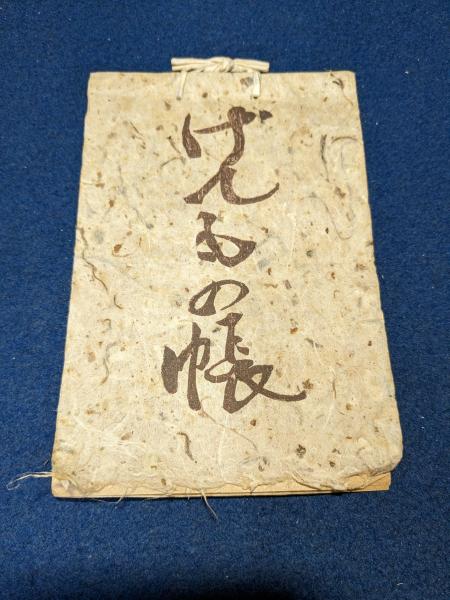 げん の帳